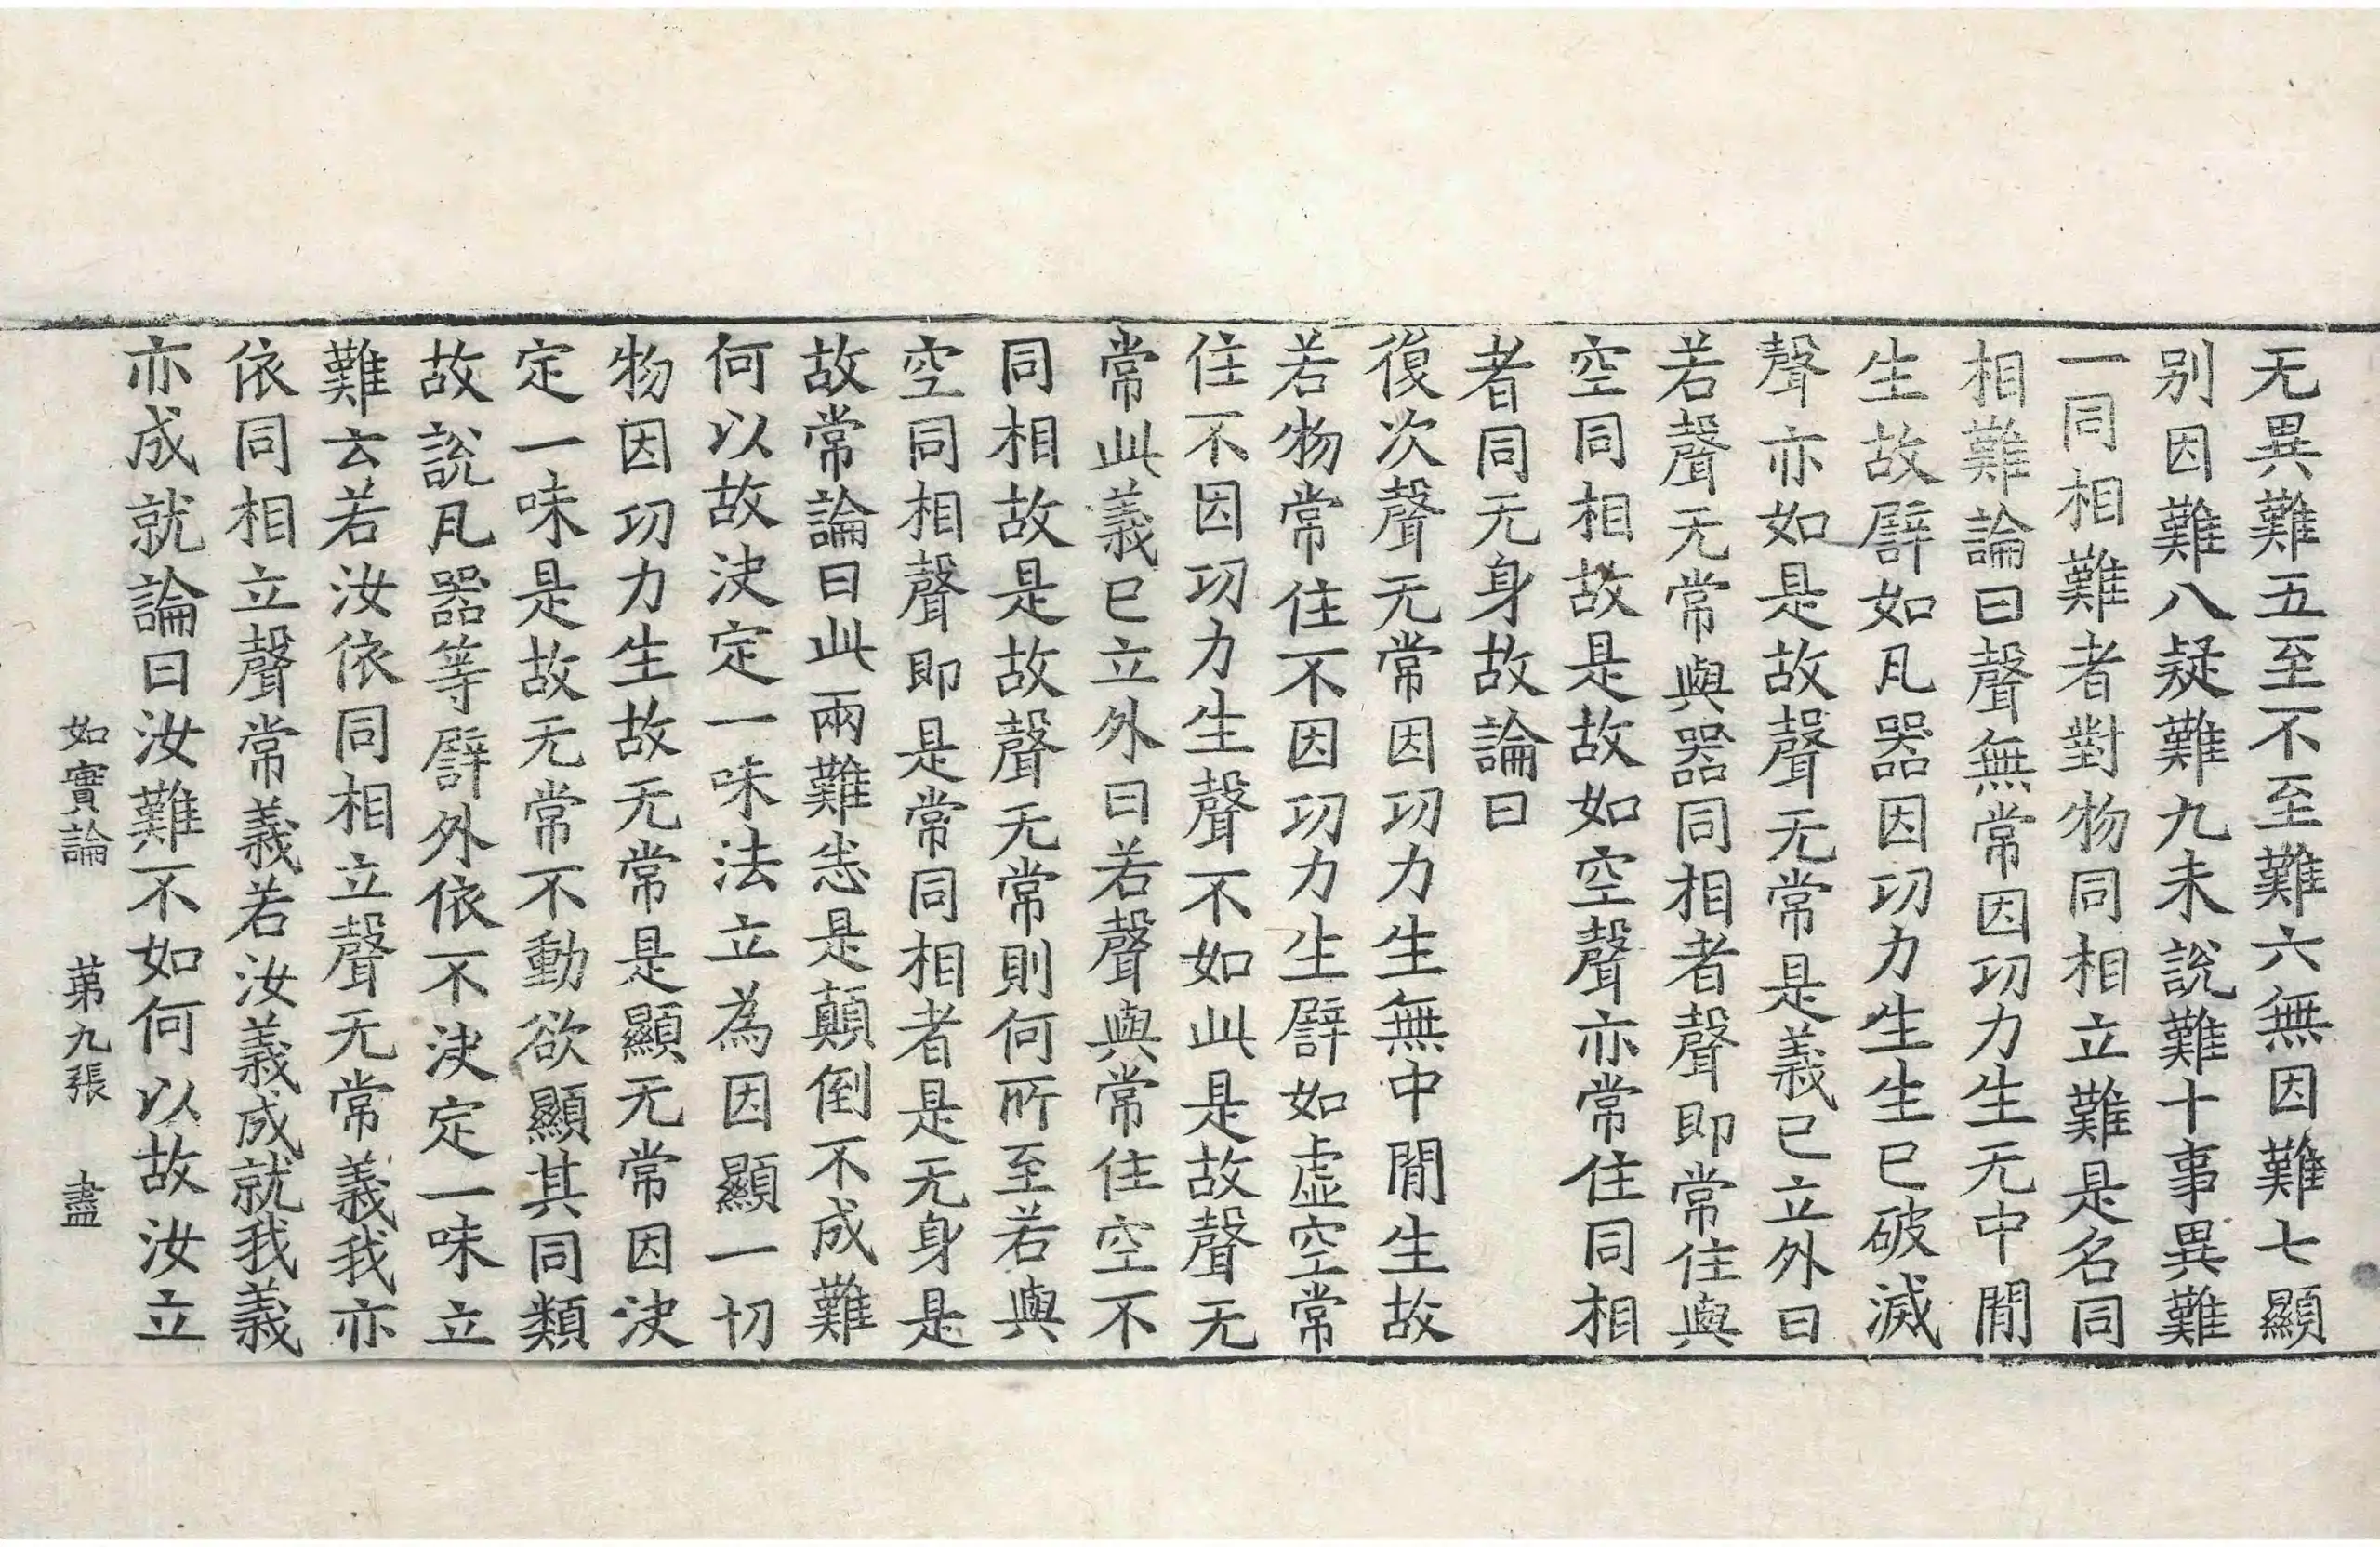 无異難五至不至難六無因難七顯
别因難八疑難九未說難十事異難
一同相難者對物同相立難是名同
相難論曰聲無常因㓛力生无中閒
生故譬如瓦器因㓛力生生已破滅
聲亦如是故聲无常是義已立外曰
若聲无常與器同相者聲即常住與
空同相故是故如空聲亦常住同相
者同无身故論曰
復次聲无常因㓛力生無中閒生故
若物常住不因㓛力生譬如虛空常
住不因㓛力生聲不如此是故聲无
常此義已立外曰若聲與常住空不
同相故是故聲无常則何所至若與
空同相聲即是常同相者是无身是
故常論曰此兩難悉是顛倒不成難
何以故決定一味法立為因顯一切
物因㓛力生故无常是顯无常因決
定一味是故无常不動欲顯其同類
故說瓦器等譬外依不決定一味立
難云若汝依同相立聲无常義我亦
依同相立聲常義若汝義成就我義
亦成就論曰汝難不如何以故汝立
如實論 苐九張 盡